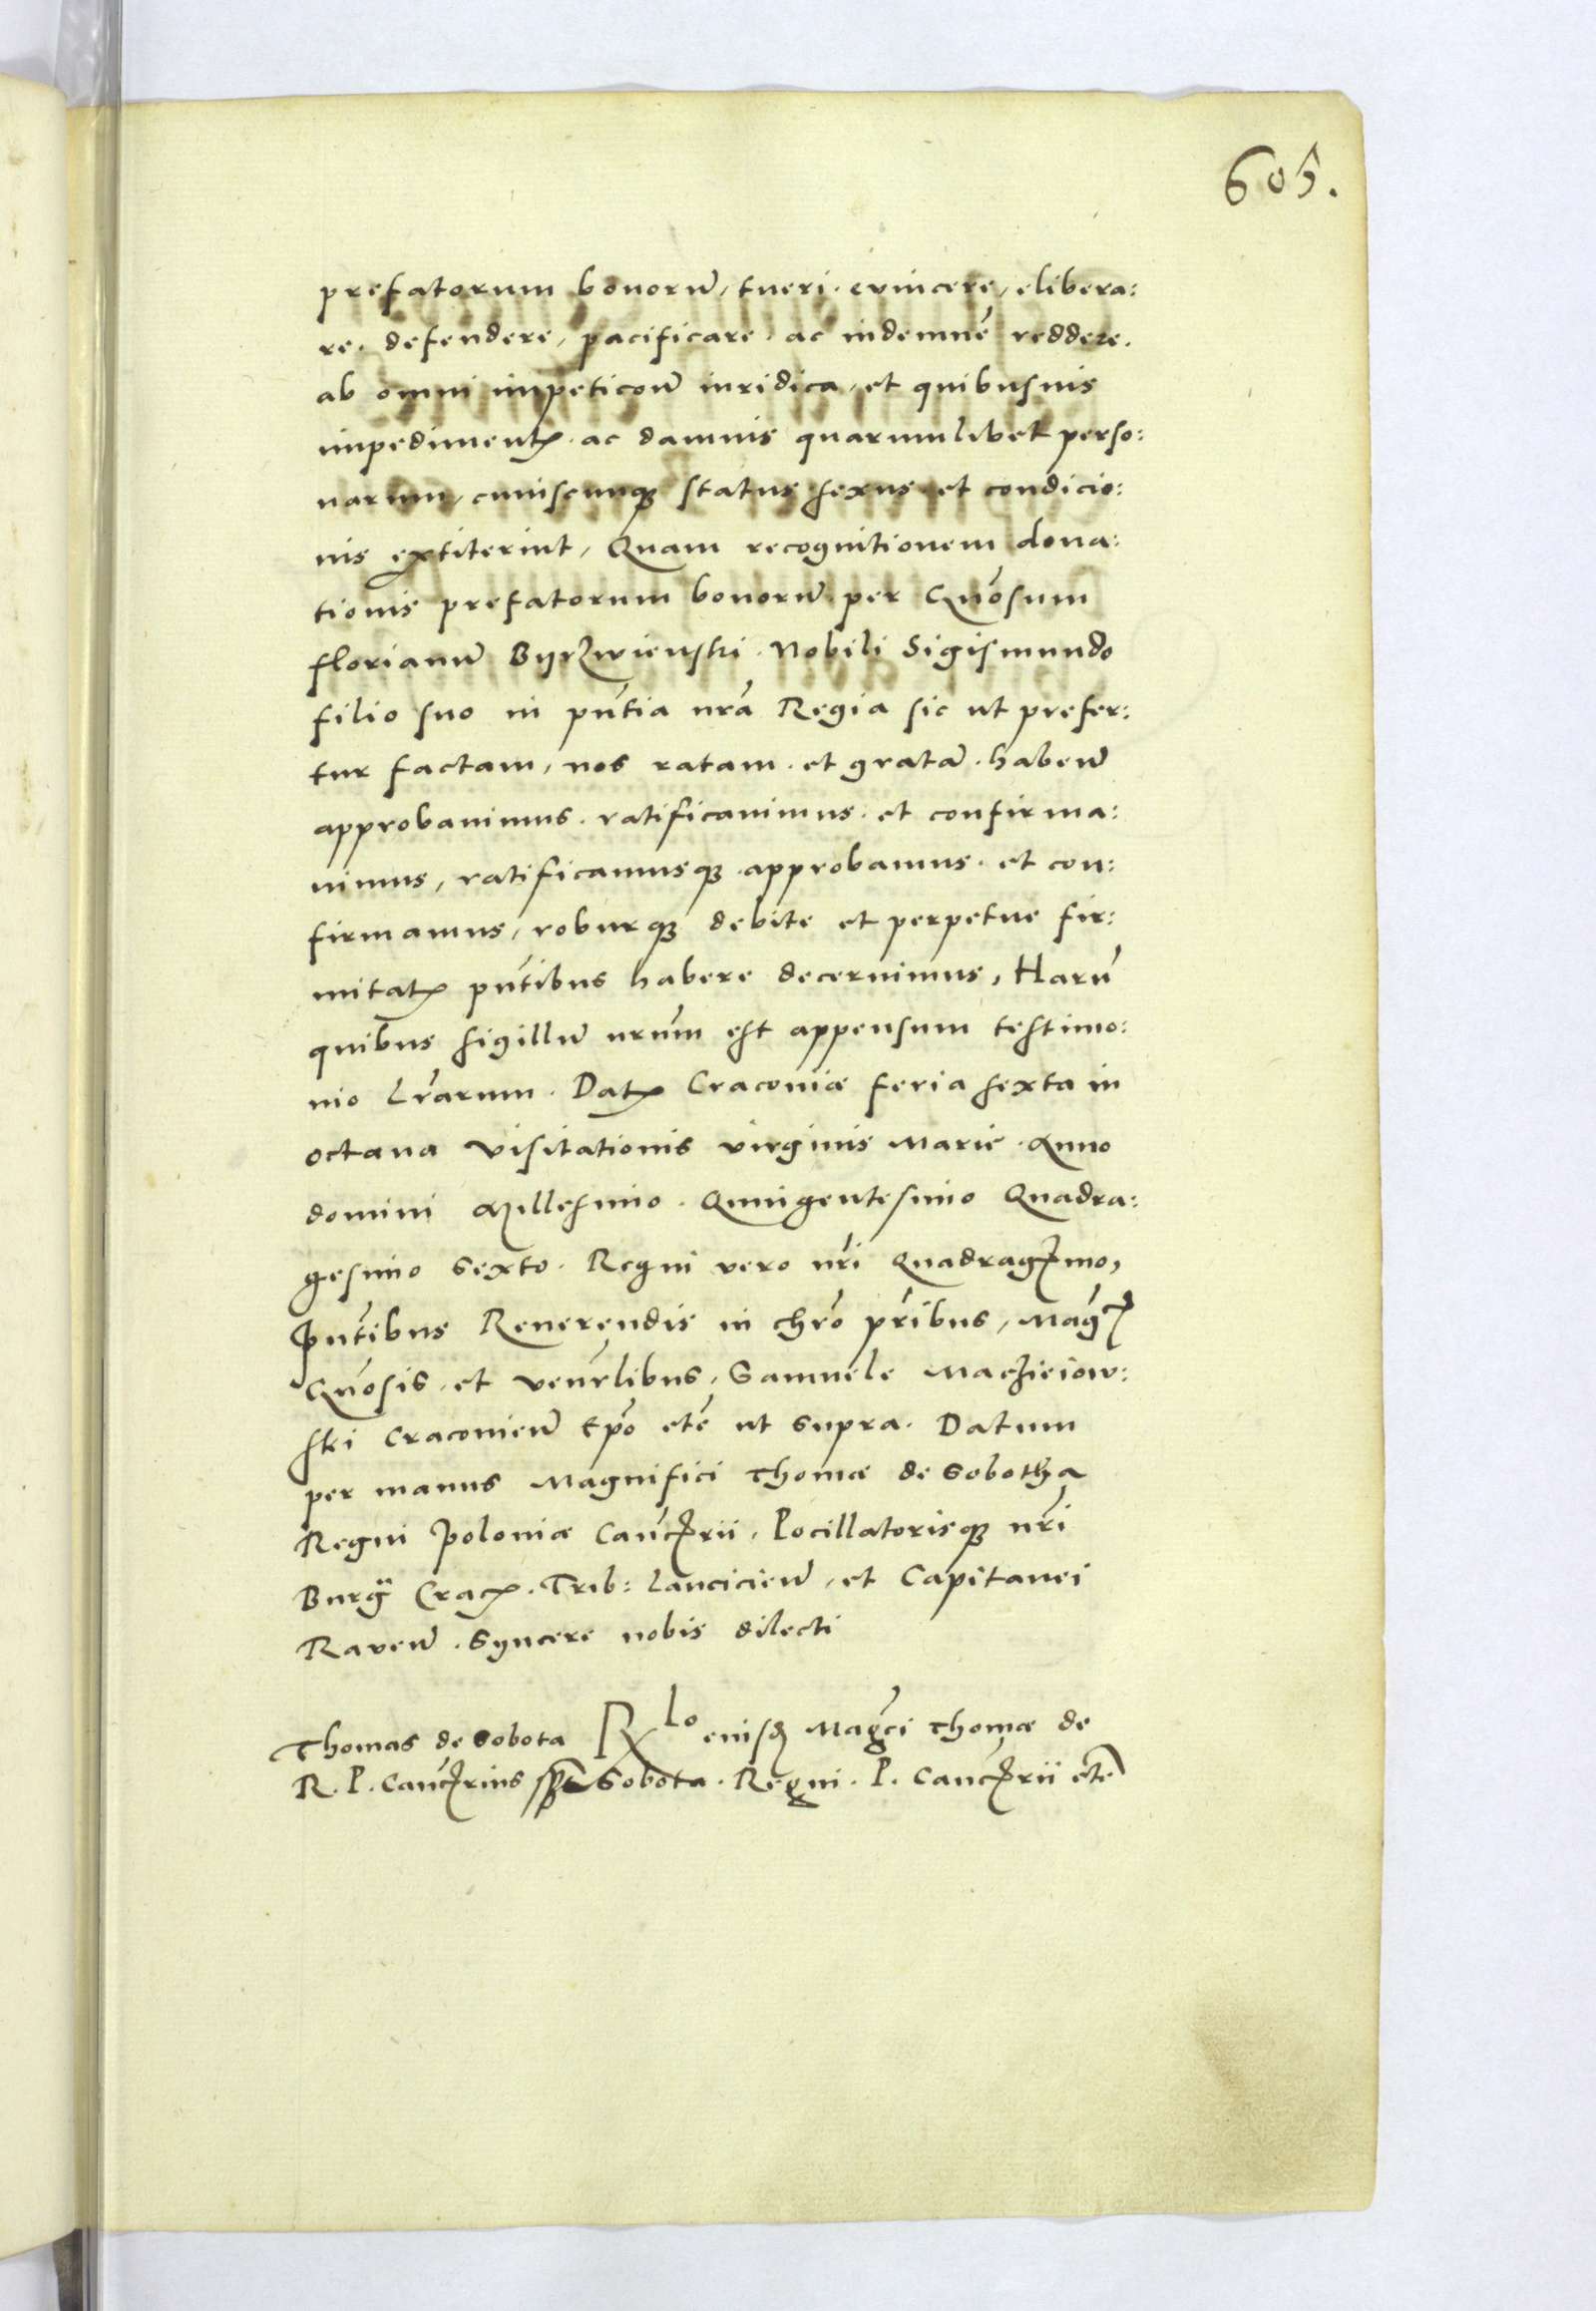 605.
prefatorum bonorũ, tueri. evincere, elibera:
re. defendere, pacificare. ac indemnẽ reddere.
ab omni impeticoñ iuridica, et quibusuis
impedimentꝭ. ac damnis quarumlibet perso:
narum, cuiuscunqꝫ status sexus et condicio:
nis extiterint, Quam recognitionem dona:
tionis prefatorum bonorũ per Gñosum
florianũ Byrzwienski. Nobili Sigismundo
filio suo in pñtia nrã Regia sic ut prefer:
tur factam, nos ratam. et gratã. habeñ
approbauimus. ratificauimus. et confirma:
uimus, ratificamusqꝫ approbamus. et con:
firmamus, roburqꝫ debite et perpetue fir:
mitatꝭ pñtibus habere decernimus, Harũ
quibus sigillũ nrũm est appensum testimo:
nio Lrãrum. Datꝭ Cracouiæ feria sexta in
octaua visitationis virginis Marie. Anno
domini Millesimo. Quingentesimo Quadra:
gesimo Sexto. Regni vero nrĩ Quadragꝭimo,
Pñtibus Reuerendis in chrõ pribus, Magcꝭ
Gñosis. et veñrlibus, Samuele Maczieiow:
ski Cracouieñ Epõ etc̃ ut supra. Datum
per manus Magnifici Thomæ de Sobotha
Regni Poloniæ Cancꝭrii. Pocillatorisqꝫ nrĩ
Burg̃ Cracꝭ. Trib: Lancicieñ, et Capitanei
Raveñ. Syncere nobis dilecti
Thomas de Sobota Rlo eiusd̃ Magc̃i Thomæ de
R. P. Cancꝭrius sspt Sobota. Regni. P. Cancꝭrii etc̃